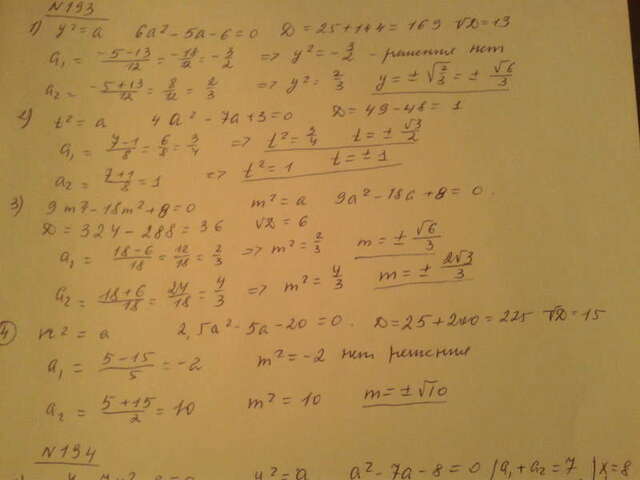 N193
1) y² = a 6a² - 5a - 6 = 0 D = 25 + 144 = 169 √D = 13
a₁ = (-5-13)/12 = -18/12 = -3/2 => y² = -3/2 - решения нет
a₂ = (-5+13)/12 = 8/12 = 2/3 => y² = 2/3 y = ±√(2/3) = ± √6/3
2) t² = a 4a² - 7a + 3 = 0 D = 49 - 48 = 1
a₁ = (7-1)/8 = 6/8 = 3/4 => t² = 3/4 t = ± √3/2
a₂ = (7+1)/8 = 1 => t² = 1 t = ± 1
3) 9m7 - 18m² + 8 = 0 m² = a 9a² - 18a + 8 = 0.
D = 324 - 288 = 36 √D = 6
a₁ = (18-6)/18 = 12/18 = 2/3 => m² = 2/3 m = ± √6/3
a₂ = (18+6)/18 = 24/18 = 4/3 => m² = 4/3 m = ± 2√3/3
4) n² = a 2,5a² - 5a - 20 = 0. D = 25 + 200 = 225 √D = 15
a₁ = (5-15)/5 = -2 m² = -2 нет решения
a₂ = (5+15)/2 = 10 m² = 10 m = ±√10
N194
a² - 7a - 8 = 0 a₁ + a₂ = 7 x = 8